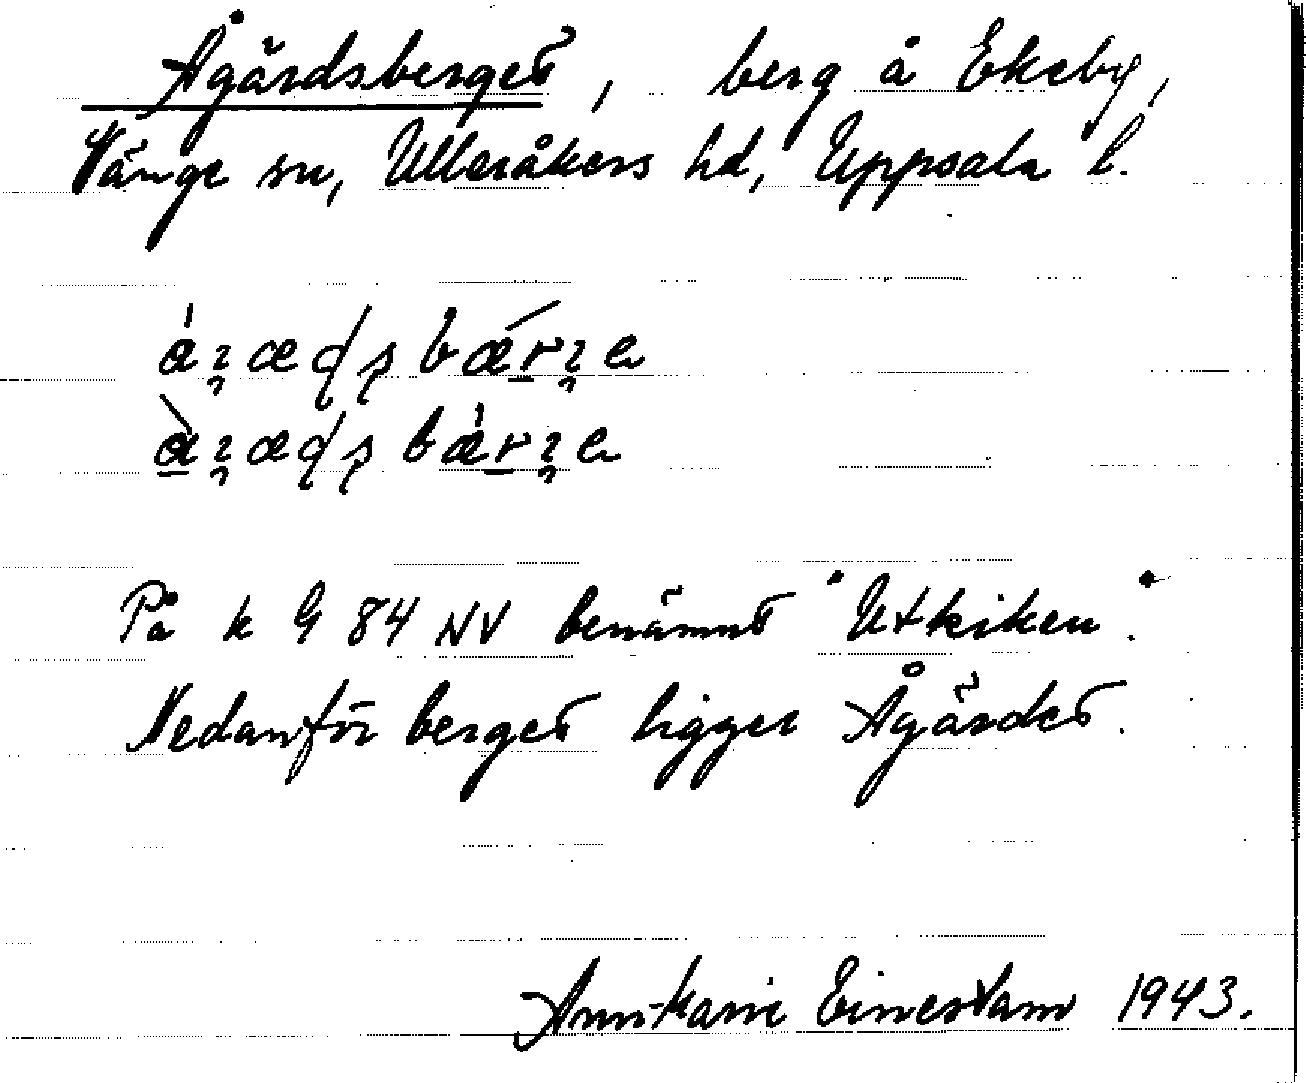 Ågärdsberget, berg å Ekeby,
Vänge sn, Ulleråkers hd, Uppsala l.
På k G 84 NV benämnt "Utkiken".
Nedanför berget ligger Ågärdet.
Ann-Marie Einerstam 1943.